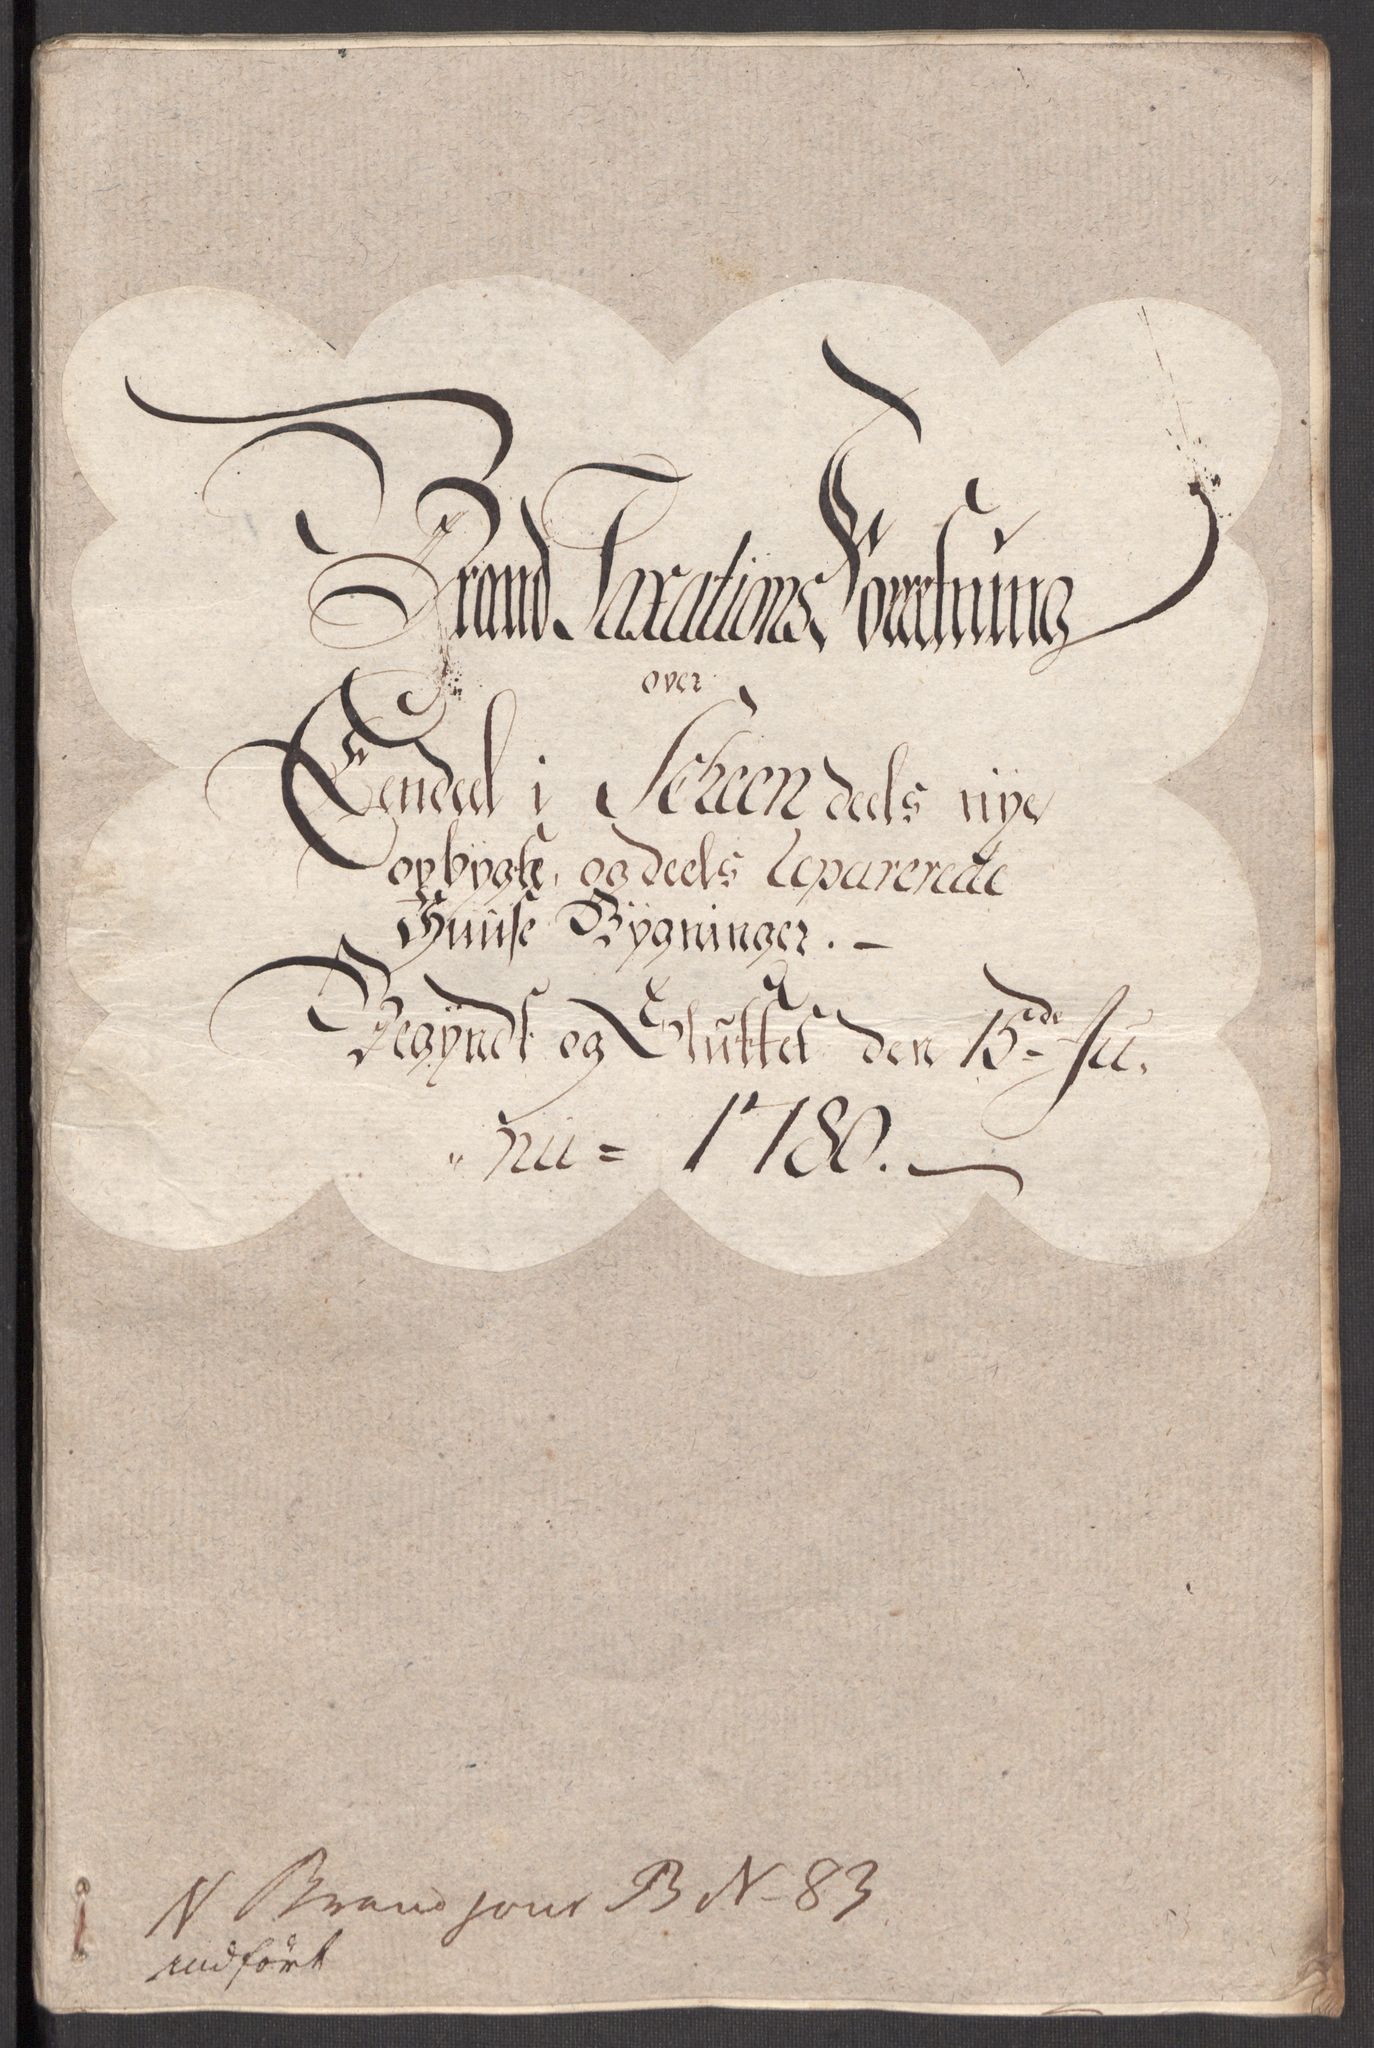 Brand Taxations Forretning
over
Eendeel i Scheen deels nye
opbygte, og deels reparerede
Huuse Bygninger. –
Begyndt og Sluttet den 15de Ju„
„nii = 1780.
N Brand jour B N– 83
indfört